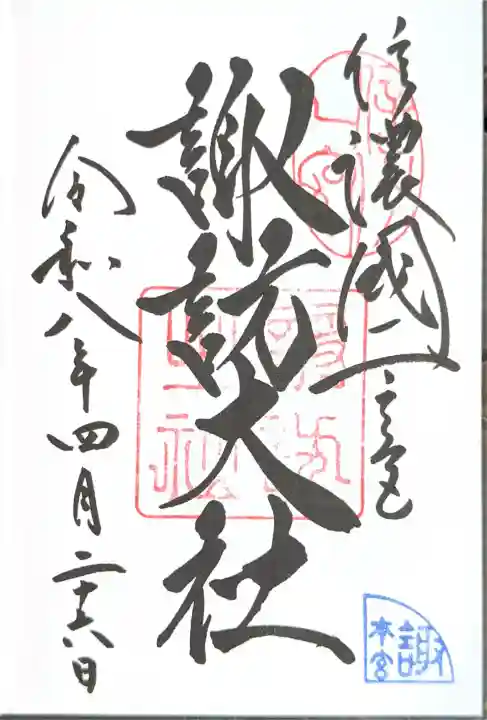 信濃國一之宮
諏訪大社
令和八年四月二十六日
諏
本宮